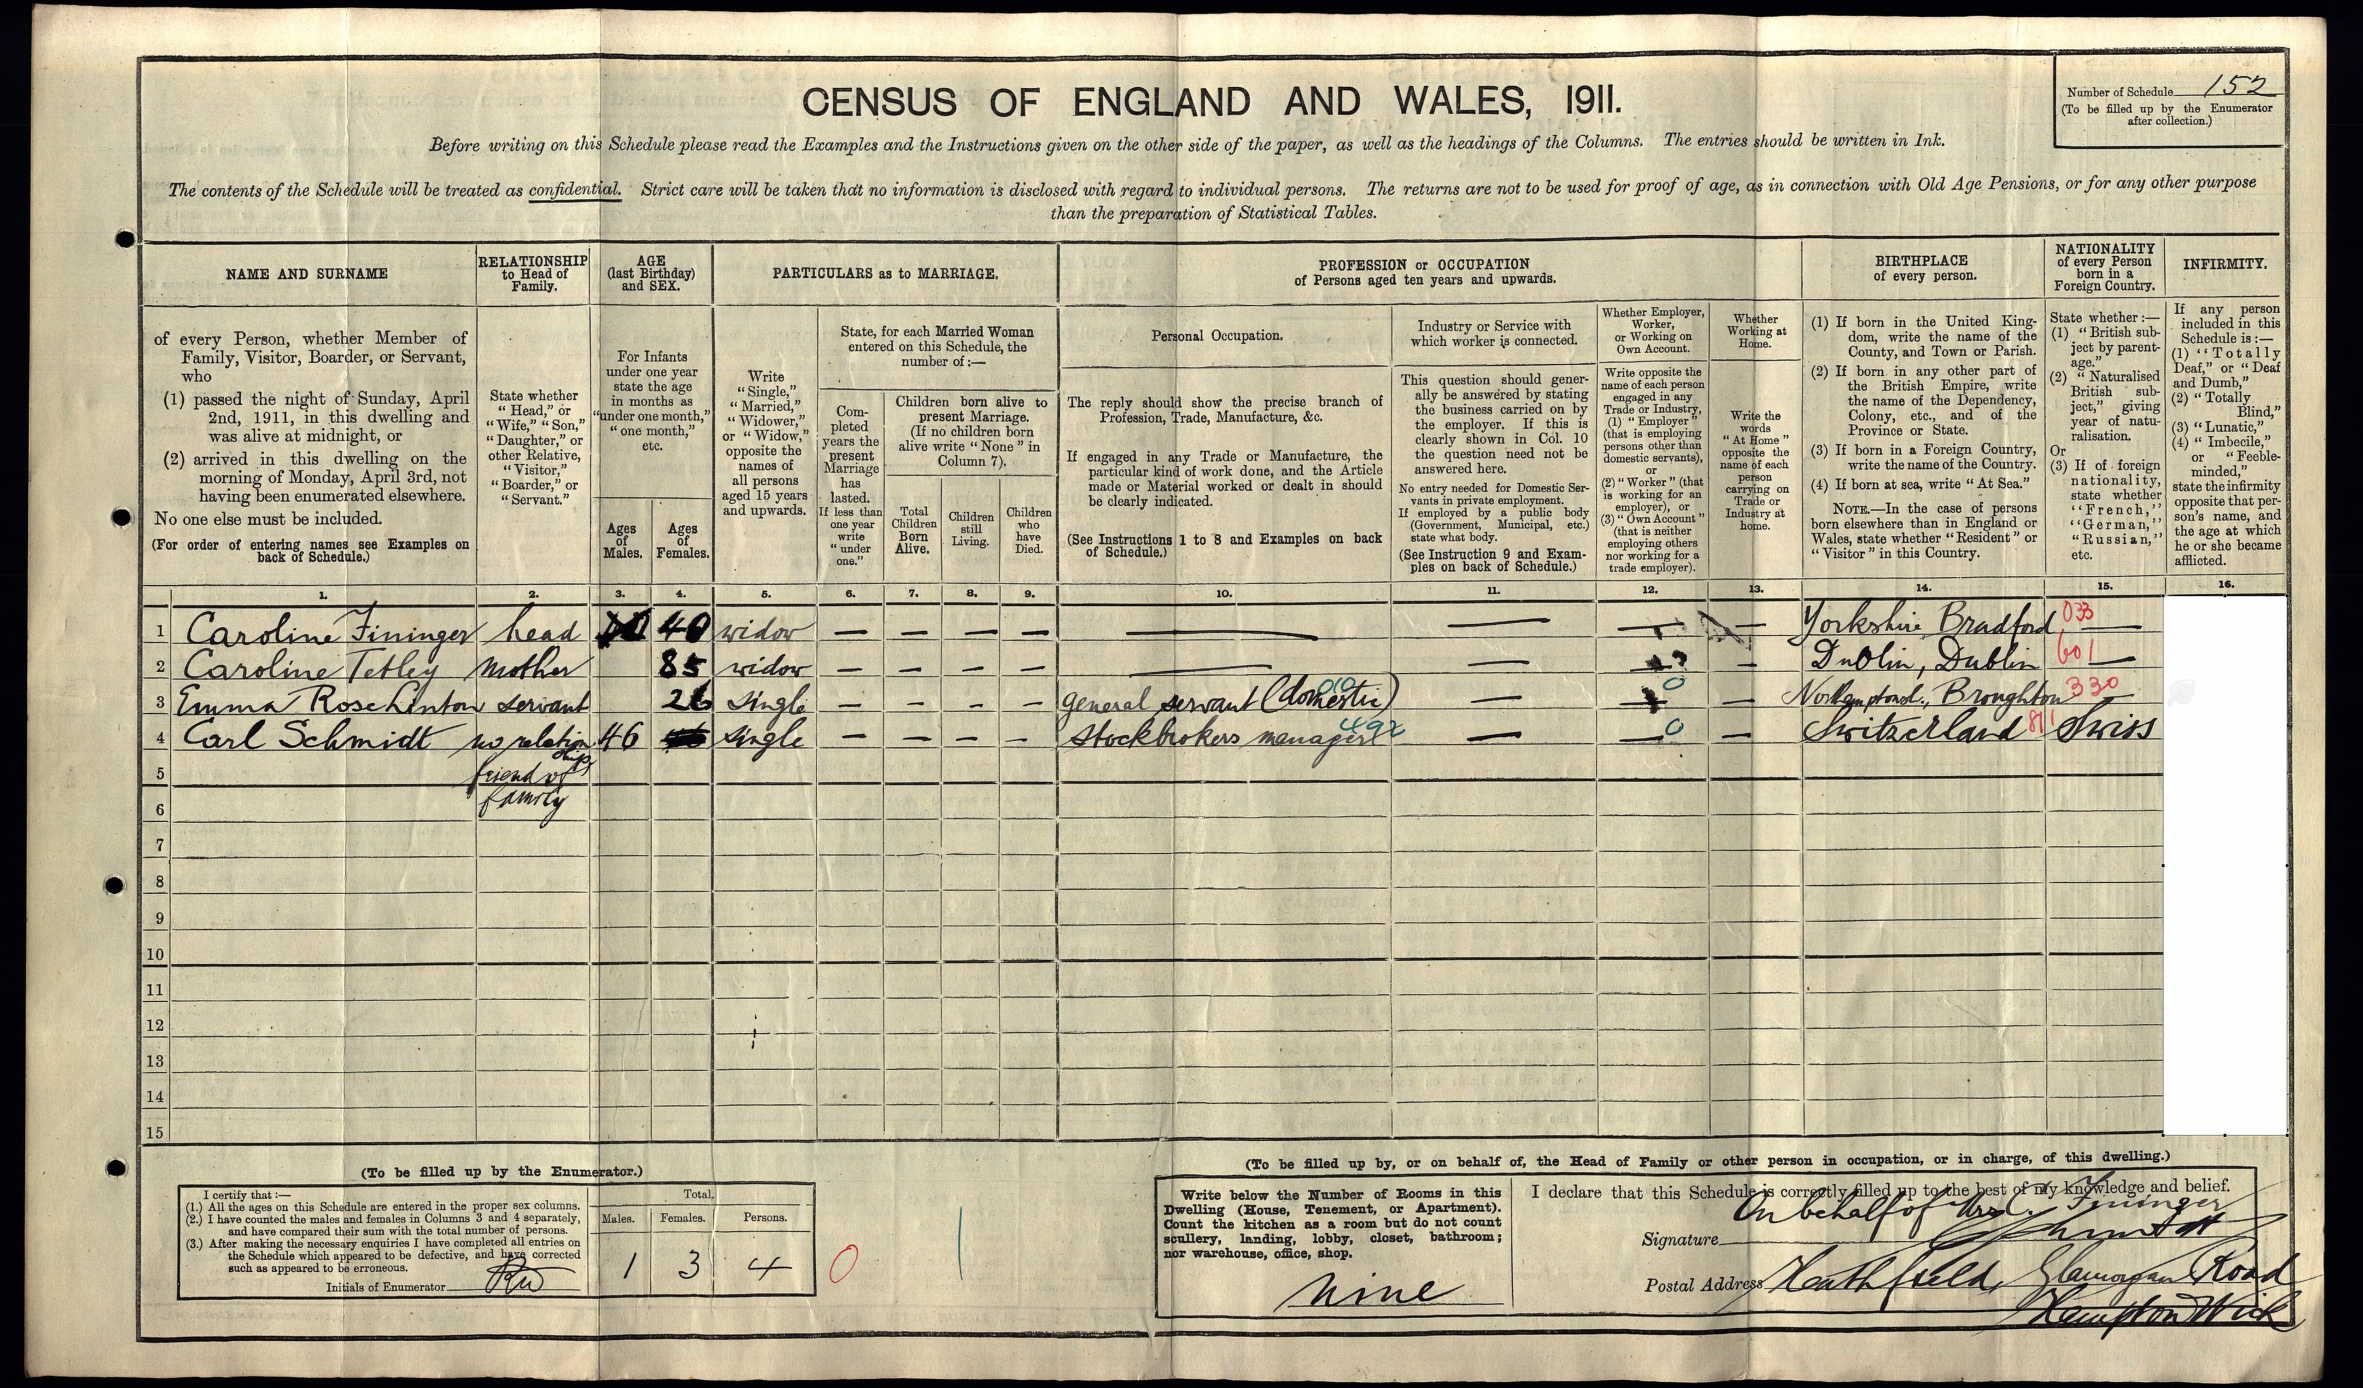 Number of Schedule 152
(To be filled up by the Enumerator
after collection.)
CENSUS OF ENGLAND AND WALES, 1911.
Before writing on this Schedule please read the Examples and the Instructions given on the other side of the paper, as well as the headings of the Columns. The entries should be written in Ink.
The contents of the Schedule will be treated as confidential. Strict care will be taken that no information is disclosed with regard to individual persons. The returns are not to be used for proof of age, as in connection with Old Age Pensions, or for any other purpose
than the preparation of Statistical Tables.
NAME AND SURNAME
of every Person, whether Member of
Family, Visitor, Boarder, or Servant,
who
(1) passed the night of Sunday, April
2nd, 1911, in this dwelling and
was alive at midnight, or
(2) arrived in this dwelling on the
morning of Monday, April 3rd, not
having been enumerated elsewhere.
No one else must be included.
(For order of entering names see Examples on
back of Schedule.)
RELATIONSHIP
to Head of
Family.
State whether
"Head," or
"Wife," "Son,"
"Daughter," or
other Relative,
"Visitor,"
"Boarder," or
"Servant."
AGE
(last Birthday)
and SEX.
For Infants
under one year
state the age
in months as
"under one month,"
"one month,"
etc.
Ages
of
Males.
Ages
of
Females.
PARTICULARS as to MARRIAGE.
Write
"Single,"
"Married,"
"Widower,"
or "Widow,"
opposite the
names of
all persons
aged 15 years
and upwards.
State, for each Married Woman
entered on this Schedule, the
number of:—
Com-
pleted
years the
present
Marriage
has
lasted.
If less than
one year
write
"under
one."
Children born alive to
present Marriage.
(If no children born
alive write "None" in
Column 7).
Total
Children
Born
Alive.
Children
still
Living.
Children
who
have
Died.
PROFESSION or OCCUPATION
of Persons aged ten years and upwards.
Personal Occupation.
The reply should show the precise branch of
Profession, Trade, Manufacture, &c.
If engaged in any Trade or Manufacture, the
particular kind of work done, and the Article
made or Material worked or dealt in should
be clearly indicated.
(See Instructions 1 to 8 and Examples on back
of Schedule.)
Industry or Service with
which worker is connected.
This question should gener-
ally be answered by stating
the business carried on by
the employer. If this is
clearly shown in Col. 10
the question need not be
answered here.
No entry needed for Domestic Ser-
vants in private employment.
If employed by a public body
(Government, Municipal, etc.)
state what body.
(See Instruction 9 and Exam-
ples on back of Schedule.)
Whether Employer,
Worker,
or Working on
Own Account.
Write opposite the
name of each person
engaged in any
Trade or Industry,
(1) "Employer"
(that is employing
persons other than
domestic servants),
or
(2) "Worker" (that
is working for an
employer), or
(3) "Own Account"
(that is neither
employing others
nor working for a
trade employer).
Whether
Working at
Home.
Write the
words
"At Home"
opposite the
name of each
person
carrying on
Trade or
Industry at
home.
BIRTHPLACE
of every person.
(1) If born in the United King-
dom, write the name of the
County, and Town or Parish.
(2) If born in any other part of
the British Empire, write
the name of the Dependency,
Colony, etc., and of the
Province or State.
(3) If born in a Foreign Country,
write the name of the Country.
(4) If born at sea, write "At Sea."
NOTE.—In the case of persons
born elsewhere than in England or
Wales, state whether "Resident" or
"Visitor" in this Country.
NATIONALITY
of every Person
born in a
Foreign Country.
State whether:—
(1) "British sub-
ject by parent-
age."
(2) "Naturalised
British sub-
ject," giving
year of natu-
ralisation.
Or
(3) If of foreign
nationality,
state whether
"French,"
"German,"
"Russian,"
etc.
INFIRMITY.
If any person
included in this
Schedule is:—
(1) "Totally
Deaf," or "Deaf
and Dumb,"
(2) "Totally
Blind,"
(3) "Lunatic,"
(4) "Imbecile,"
or "Feeble-
minded,"
state the infirmity
opposite that per-
son's name, and
the age at which
he or she became
afflicted.
1. 2. 3. 4. 5. 6. 7. 8. 9. 10. 11. 12. 13. 14. 15. 16.
1 Caroline Fininger head 40 widow — — — — — — — — Yorkshire Bradford 033 —
2 Caroline Tetley Mother 85 widow — — — — — — — — Dublin, Dublin 601 —
3 Emma Rose Linton servant 26 single — — — — general servant (domestic) 010 — 0 — Northamptonsh., Broughton 330 —
4 Carl Schmidt no relation ship 46 single — — — — stockbrokers manager 492 — — 0 — Switzerland 811 Swiss
5 friend of
6 family
7
8
9
10
11
12
13
14
15
(To be filled up by the Enumerator.)
I certify that:—
(1.) All the ages on this Schedule are entered in the proper sex columns.
(2.) I have counted the males and females in Columns 3 and 4 separately,
and have compared their sum with the total number of persons.
(3.) After making the necessary enquiries I have completed all entries on
the Schedule which appeared to be defective, and have corrected
such as appeared to be erroneous.
Initials of Enumerator
Total.
Males. Females. Persons.
1 3 4 0
(To be filled up by, or on behalf of, the Head of Family or other person in occupation, or in charge, of this dwelling.)
Write below the Number of Rooms in this
Dwelling (House, Tenement, or Apartment).
Count the kitchen as a room but do not count
scullery, landing, lobby, closet, bathroom;
nor warehouse, office, shop.
nine
I declare that this Schedule is correctly filled up to the best of my knowledge and belief.
On behalf of Mrs C. Fininger
Signature C Schmidt
Postal Address Heathfield, Glamorgan Road
Hampton Wick